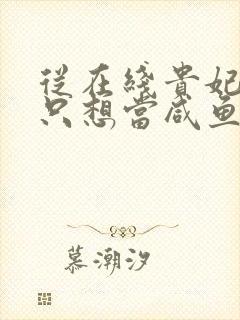 従在綫貴妃
只想當咸鱼
慕潮汐